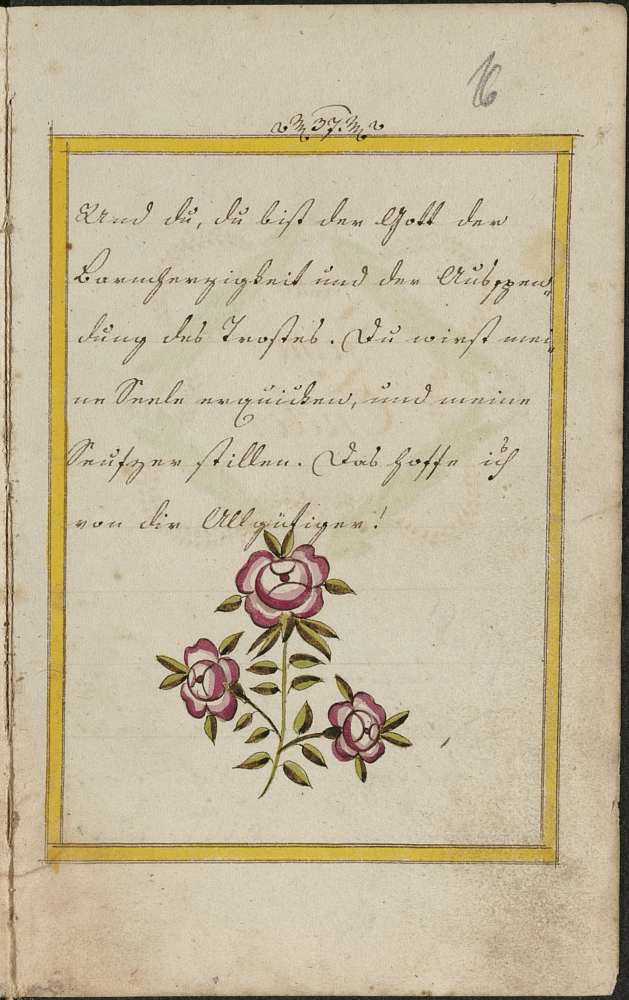 16
37.
Und du, du bist der Gott der
Barmherzigkeit und der Ausspen„
dung des Trostes. Du wirst mei„
ne Seele erquicken, und meine
Seufzer stillen. Das hoffe ich
von dir Allgütiger!